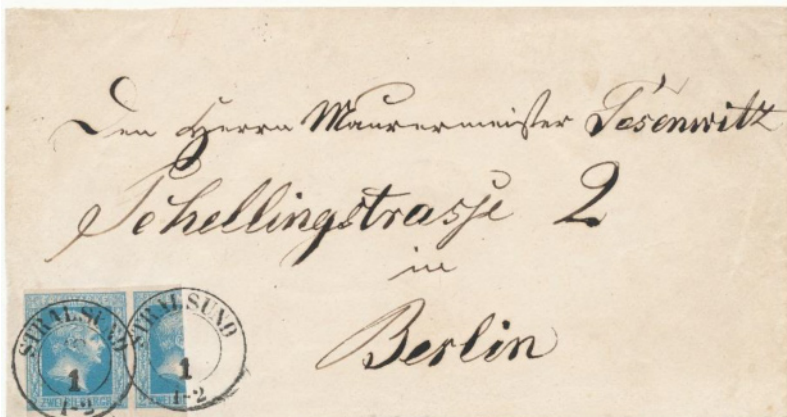 Den Herrn Maurermeister Tesenwitz
Schellingstrasse 2
in
Berlin
STRALSUND
1
1-2
STRALSUND
1
1-2